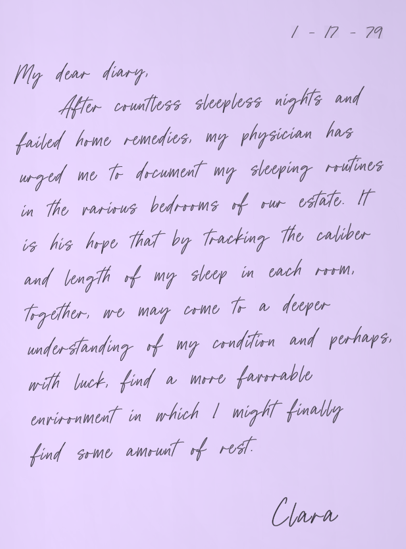 1 - 17 - 79
My dear diary,
After countless sleepless nights and
failed home remedies, my physician has
urged me to document my sleeping routines
in the various bedrooms of our estate. It
is his hope that by tracking the caliber
and length of my sleep in each room,
together, we may come to a deeper
understanding of my condition and perhaps,
with luck, find a more favorable
environment in which I might finally
find some amount of rest.
Clara